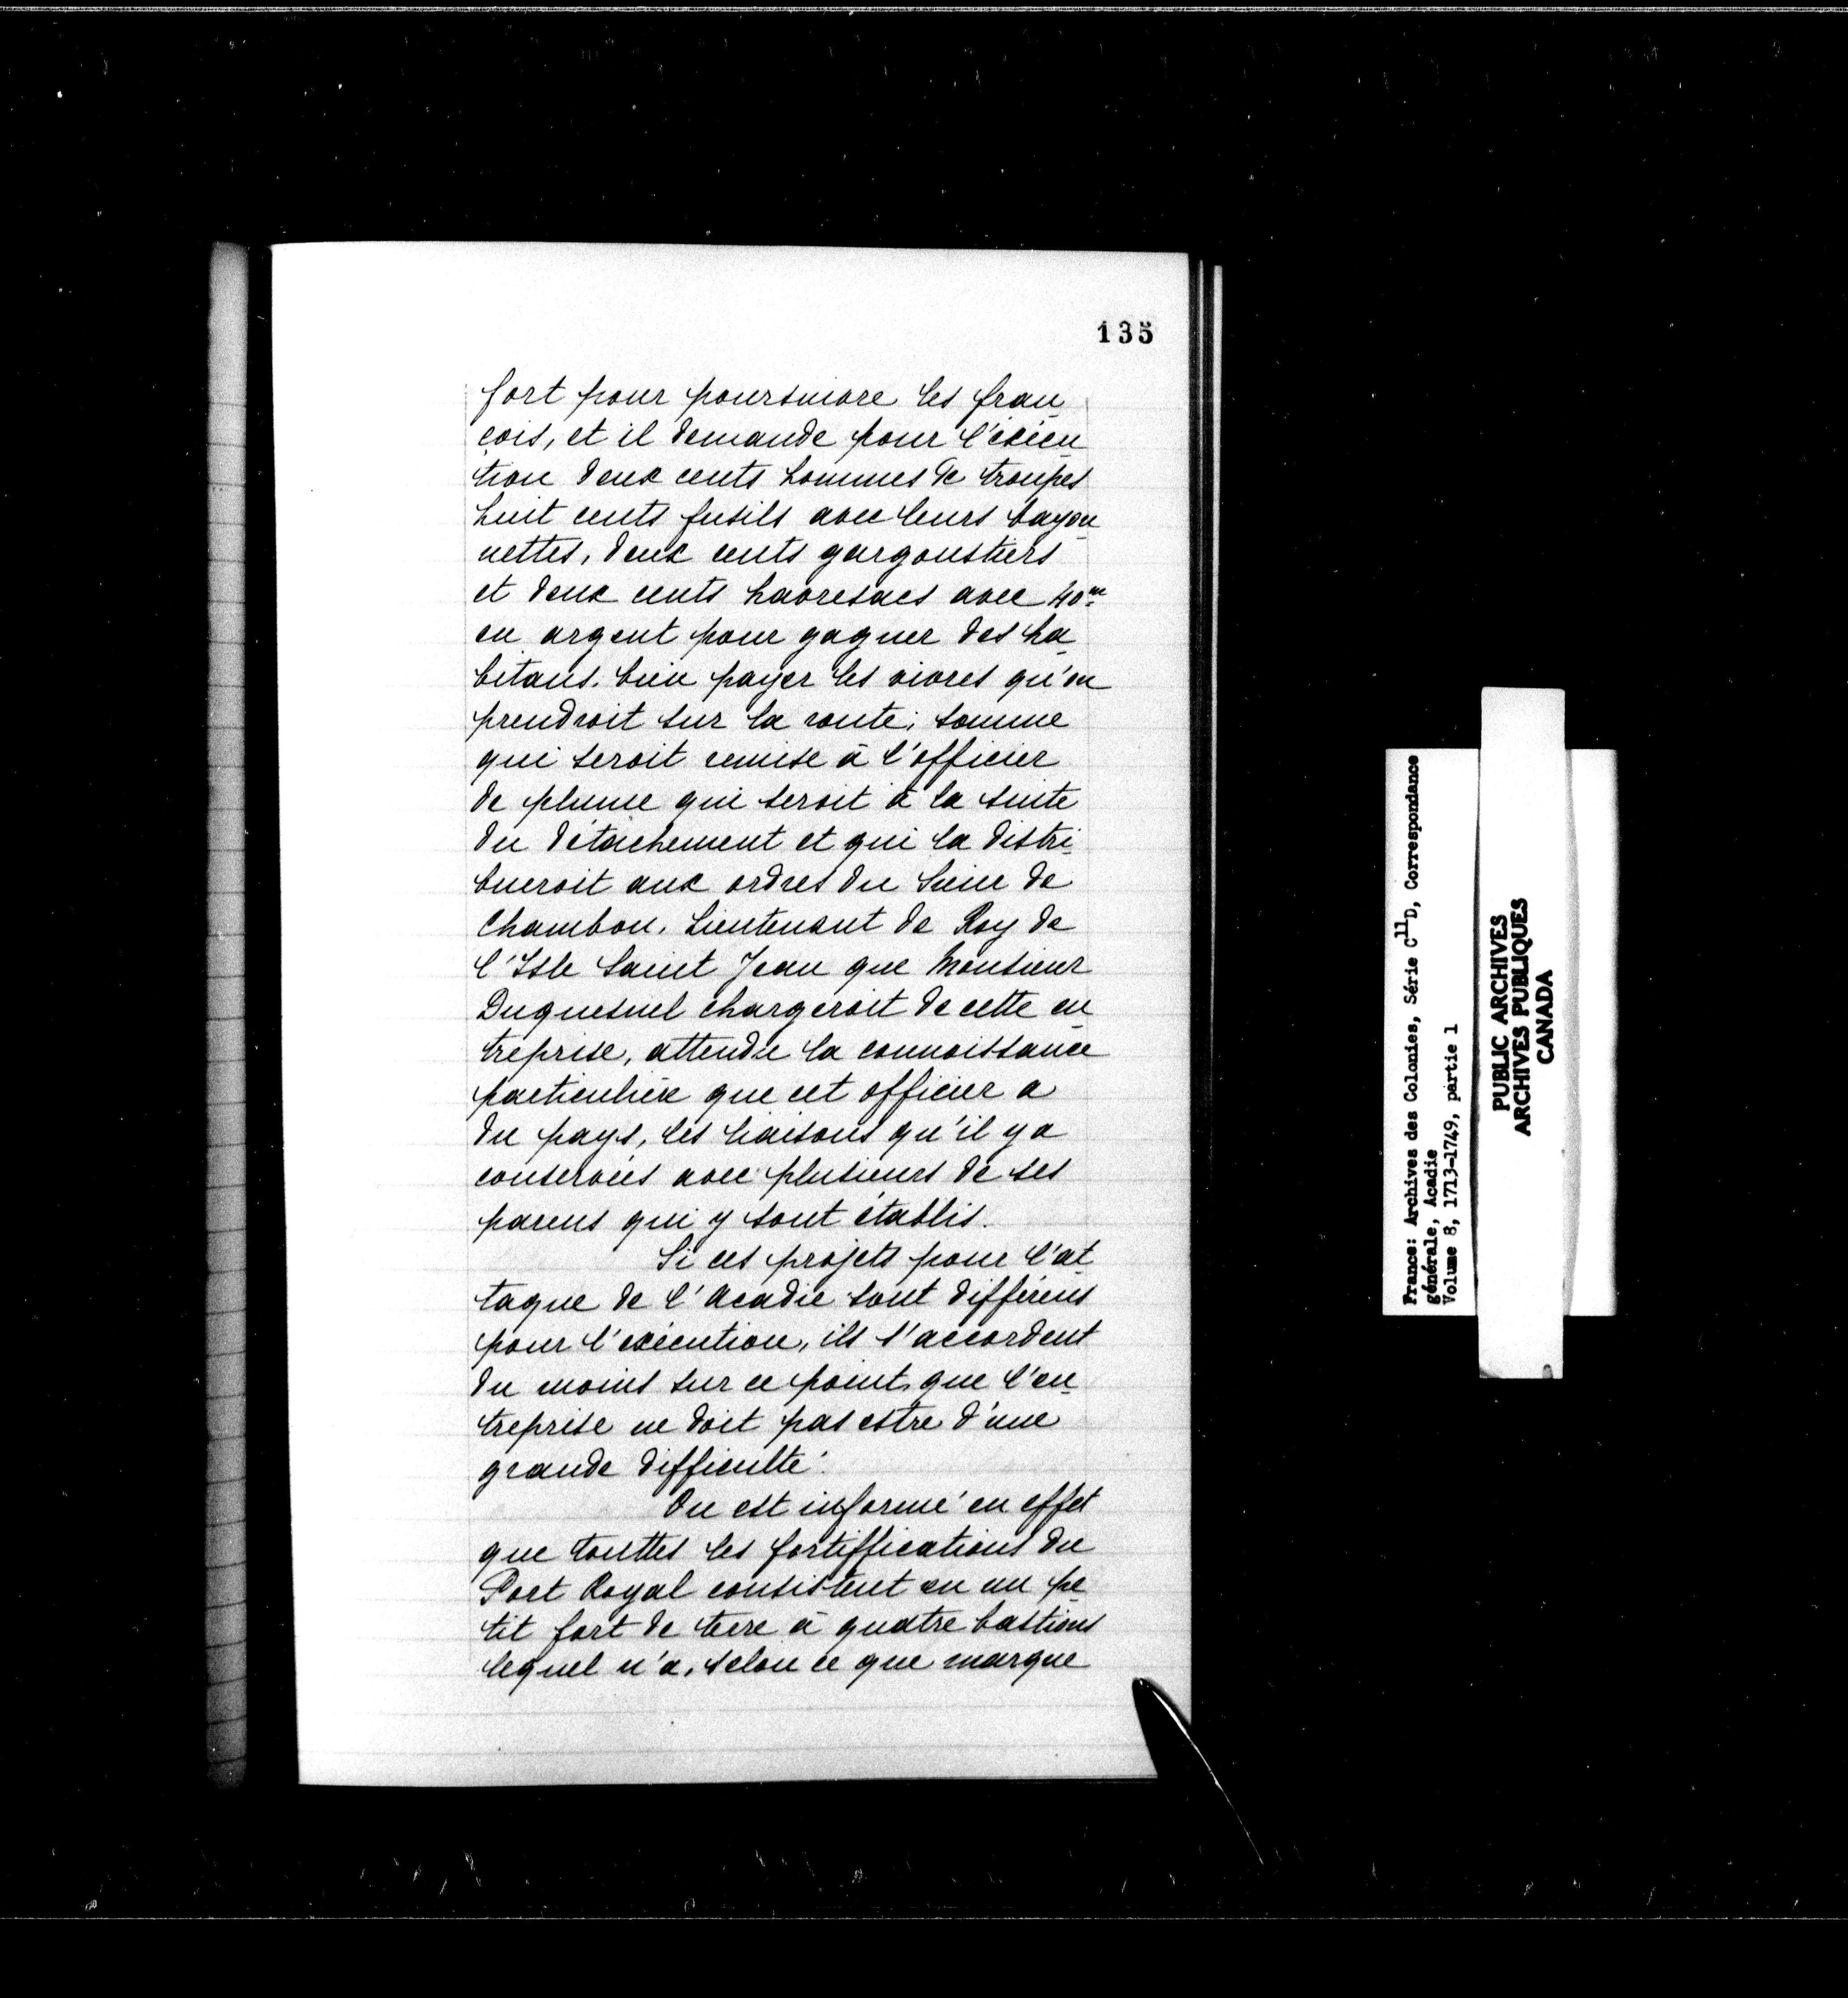 135
fort pour poursuivre les fran
çois, et il demande pour l'éxécu
tion deux cents hommes de troupes
huit cents fusils avec leurs bayon
nettes, deux cents gargoustiers
et deux cents havresacs avec 40m
en argent pour gagner des ha
bitans, bien payer les vivres qu'on
prendroit sur la route; somme
qui seroit remise à l'officier
de plume qui seroit à la suite
du détachement et qui la distri
bueroit aux ordres du Sieur de
Chambon, Lieutenant de Roy de
l'Isle Saint Jean que Monsieur
Duquesnel chargeroit de cette en
treprise, attendu la connoissance
particulière que cet officier a
du pays, les liaisons qu'il y a
conservées avec plusieurs de ses
parens qui y sont établis.
Si ces projets pour l'at
taque de l'Acadie sont différens
pour l'exécution, ils s'accordent
du moins sur ce point, que l'en
treprise ne doit pas estre d'une
grande difficulté.
On est informé en effet
que touttes les fortiffications du
Port Royal consistent en un pe
tit fort de terre à quatre bastions
lequel n'a, selon ce que marque
France: Archives des Colonies, Série C11D, Correspondance
générale, Acadie
Volume 8, 1713-1749, partie 1
PUBLIC ARCHIVES
ARCHIVES PUBLIQUES
CANADA